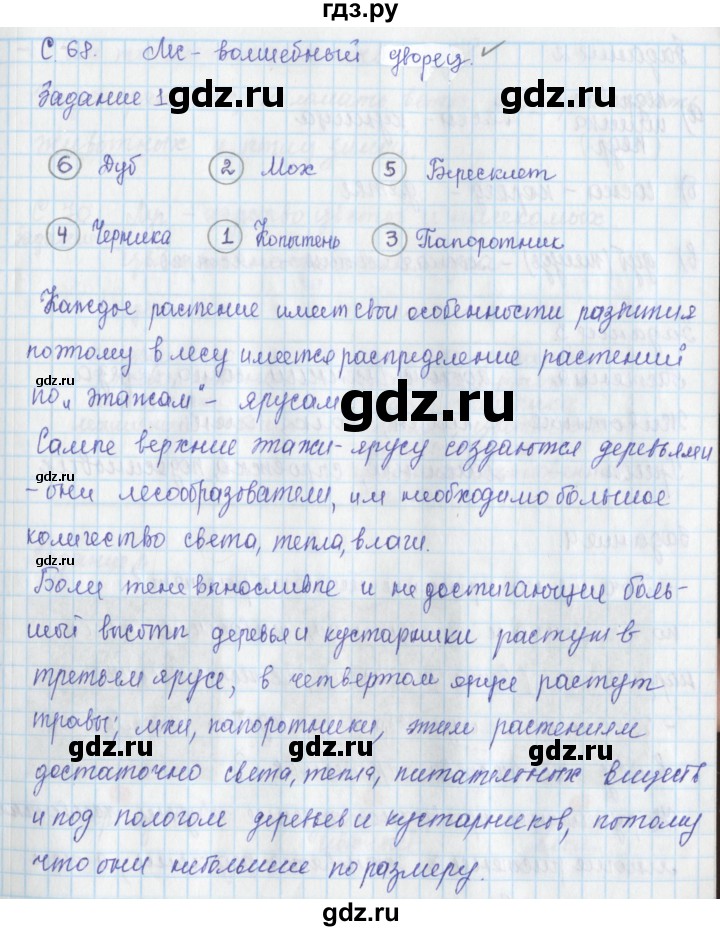 гдз.ру
С 68. Лес - волшебный дворец. ✓
Задание 1
gdz.ru gdz.ru
6 Дуб 2 Мох 5 Бересклет
4 Черника 1 Копытень 3 Папоротник
Каждое растение имеет свои особенности развития
поэтому в лесу имеется распределение растений
gdz.ru
по „этажам" - ярусам
gdz.ru gdz.ru
Самые верхние этажи-ярусу создаются деревьями
- они лесообразователи, им необходимо большое
gdz.ru
количество света, тепла, влаги.
Более теневыносливые и не достигающие боль-
шой высоты деревья и кустарники растут в
третьем ярусе, в четвертом ярусе растут
травы; мхи, папоротники, этим растениям
gdz.ru gdz.ru gdz.ru
достаточно света, тепла, питательных веществ
и под пологом деревьев и кустарников, потому
что они небольшие по размеру.
gdz.ru